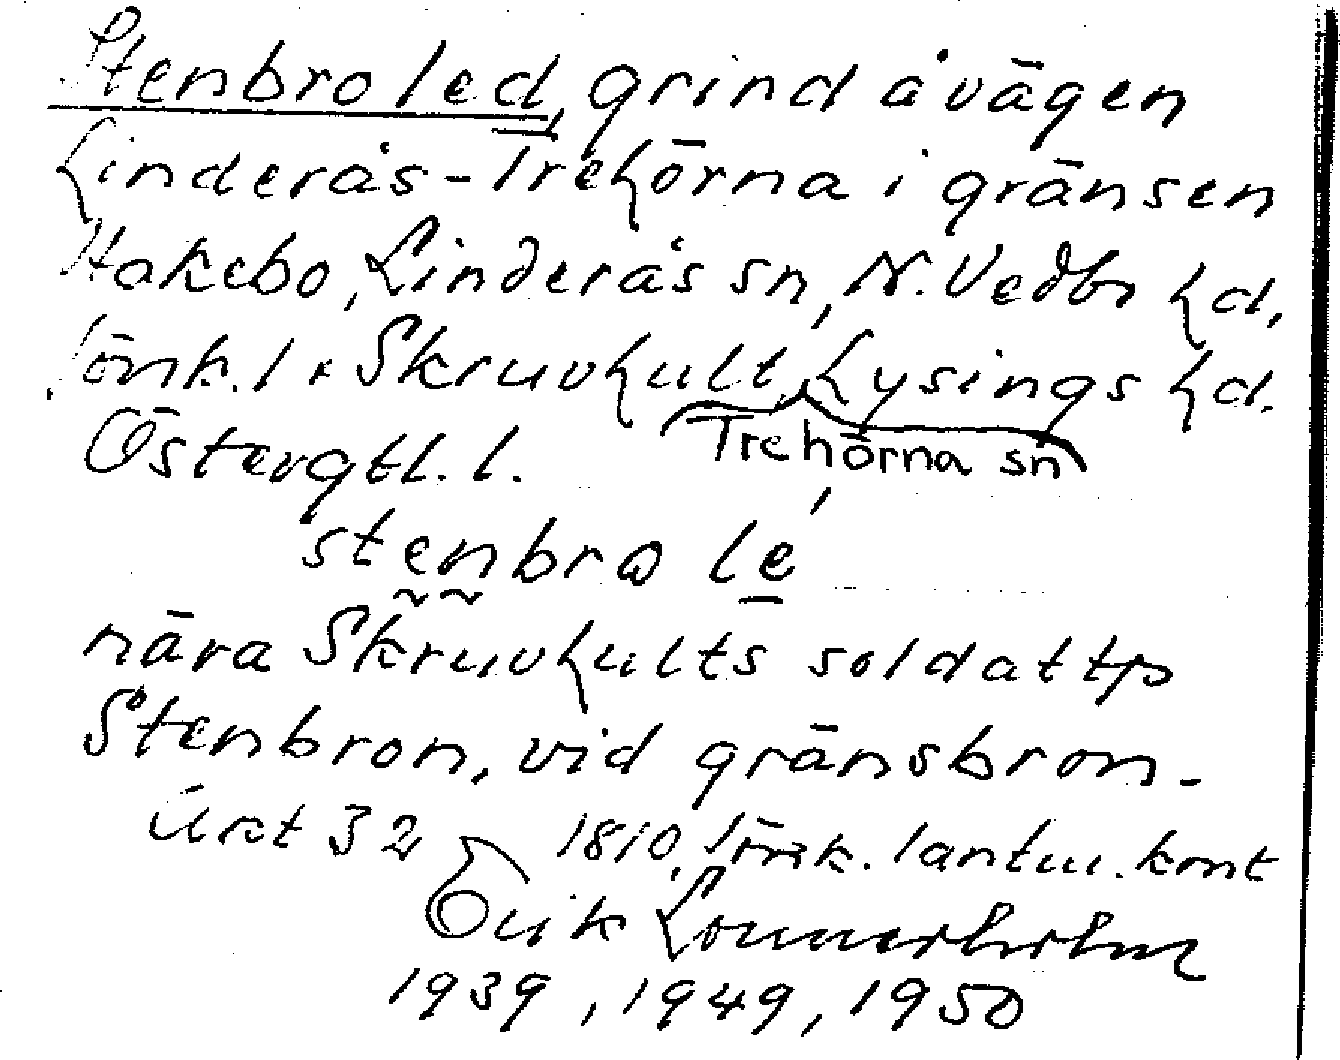 Stenbro led, grind å vägen
Linderås-Trehörna i gränsen
Hakebo, Linderås sn, N. Vedbo hd,
Jönk. l x Skruvhult, Lysings hd.
Trehörna sn
Östergtl. l.
stenbro le
nära Skruvhults soldattp
Stenbron, vid gränsbron.
Urkt 32 1810, Jönk. lantm. knt
Erik Lonnerholm
1939, 1949, 1950